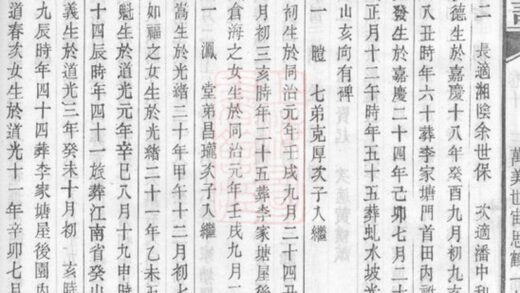 萬美世宙思鶴
二 長適湘陰余世保 次適潘中和
德生於嘉慶十八年癸酉九月初九亥
八丑時年六十葬李家塘門首田內
發生於嘉慶二十四年己卯七月二十
正月十二午時年五十五葬虬水坡
山亥向有碑
一 瞪 七弟克厚次子入繼
初生於同治元年壬戌九月二十四丑
月初三亥時年二十五葬李家塘屋後
倉海之女生於同治元年壬戌九月二
一 鳳 堂弟昌瓏次子入繼
嵩生於光緒二十年甲午十二月初七
如福之女生於光緒二十一年乙未五
魁生於道光元年辛巳八月十九申時
十四辰時年四十一旅葬江南省癸山
義生於道光三年癸未十月初 亥時
九辰時年四十四葬李家塘屋後園內
道春次女生於道光十一年辛卯七月